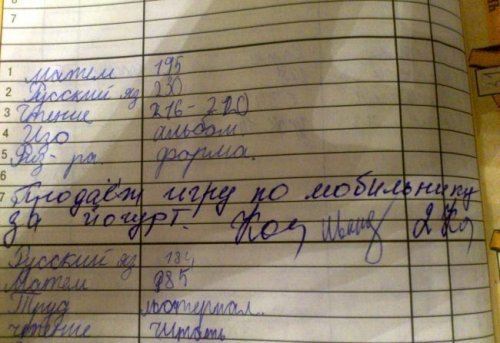 6
7
1 матем 195
2 Русский яз 230
3 Чтение 216-220
4 Изо альбом
5 Физ-ра. форма.
6
7 Продаёж игру по мобильнику
за йогурт. 2
Русский яз 184
Матем 185
Труд материал.
чтение читать